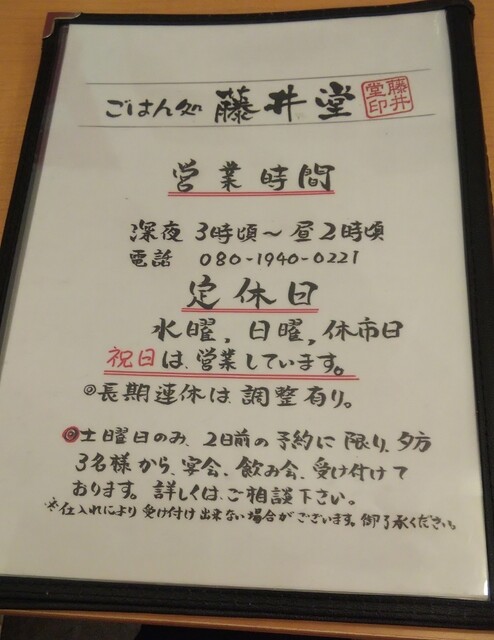 ごはん処 藤井堂 藤井堂印
営業時間
深夜 3時頃～昼2時頃
電話 080-1940-0221
定休日
水曜, 日曜, 休市日
祝日は、営業しています。
◎長期連休は、調整有り。
◎土曜日のみ、2日前の予約に限り、夕方
3名様から、宴会、飲み会、受け付けて
おります。詳しくは、ご相談下さい。
※仕入れにより受け付け出来ない場合がございます。御了承ください。